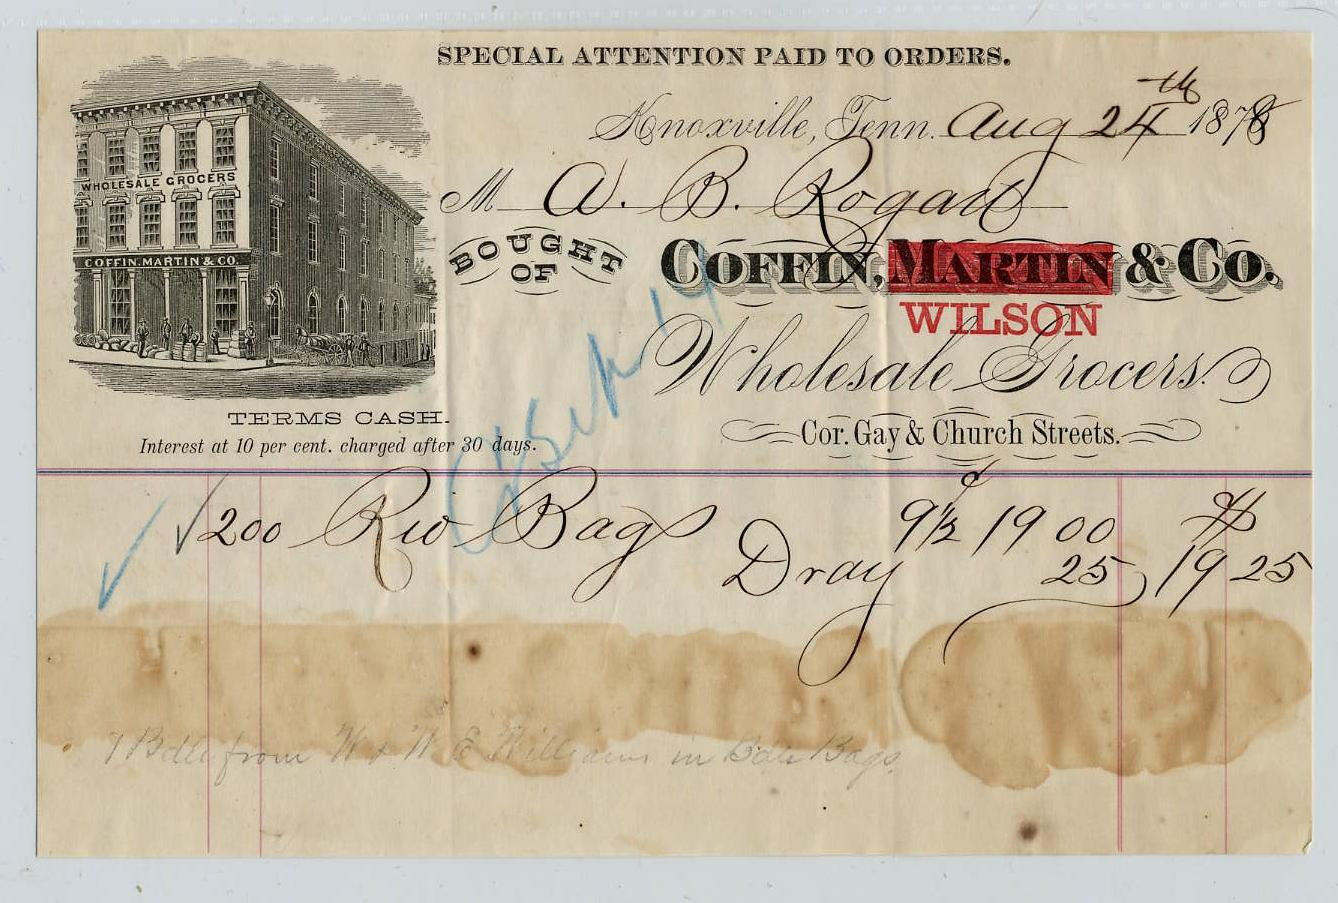 SPECIAL ATTENTION PAID TO ORDERS.
Knoxville, Tenn. Aug 24th 1878
M A. B. Rogan
WHOLESALE GROCERS
COFFIN, MARTIN & CO.
BOUGHT OF
COFFIN, MARTIN & CO.
WILSON
Wholesale Grocers.
TERMS CASH.
Cor. Gay & Church Streets.
Interest at 10 per cent. charged after 30 days.
200 Rio Bags 9½ ¢ 19 00 $
Dray 25 19 25
1 Bdle from W & W E Williams in Bags